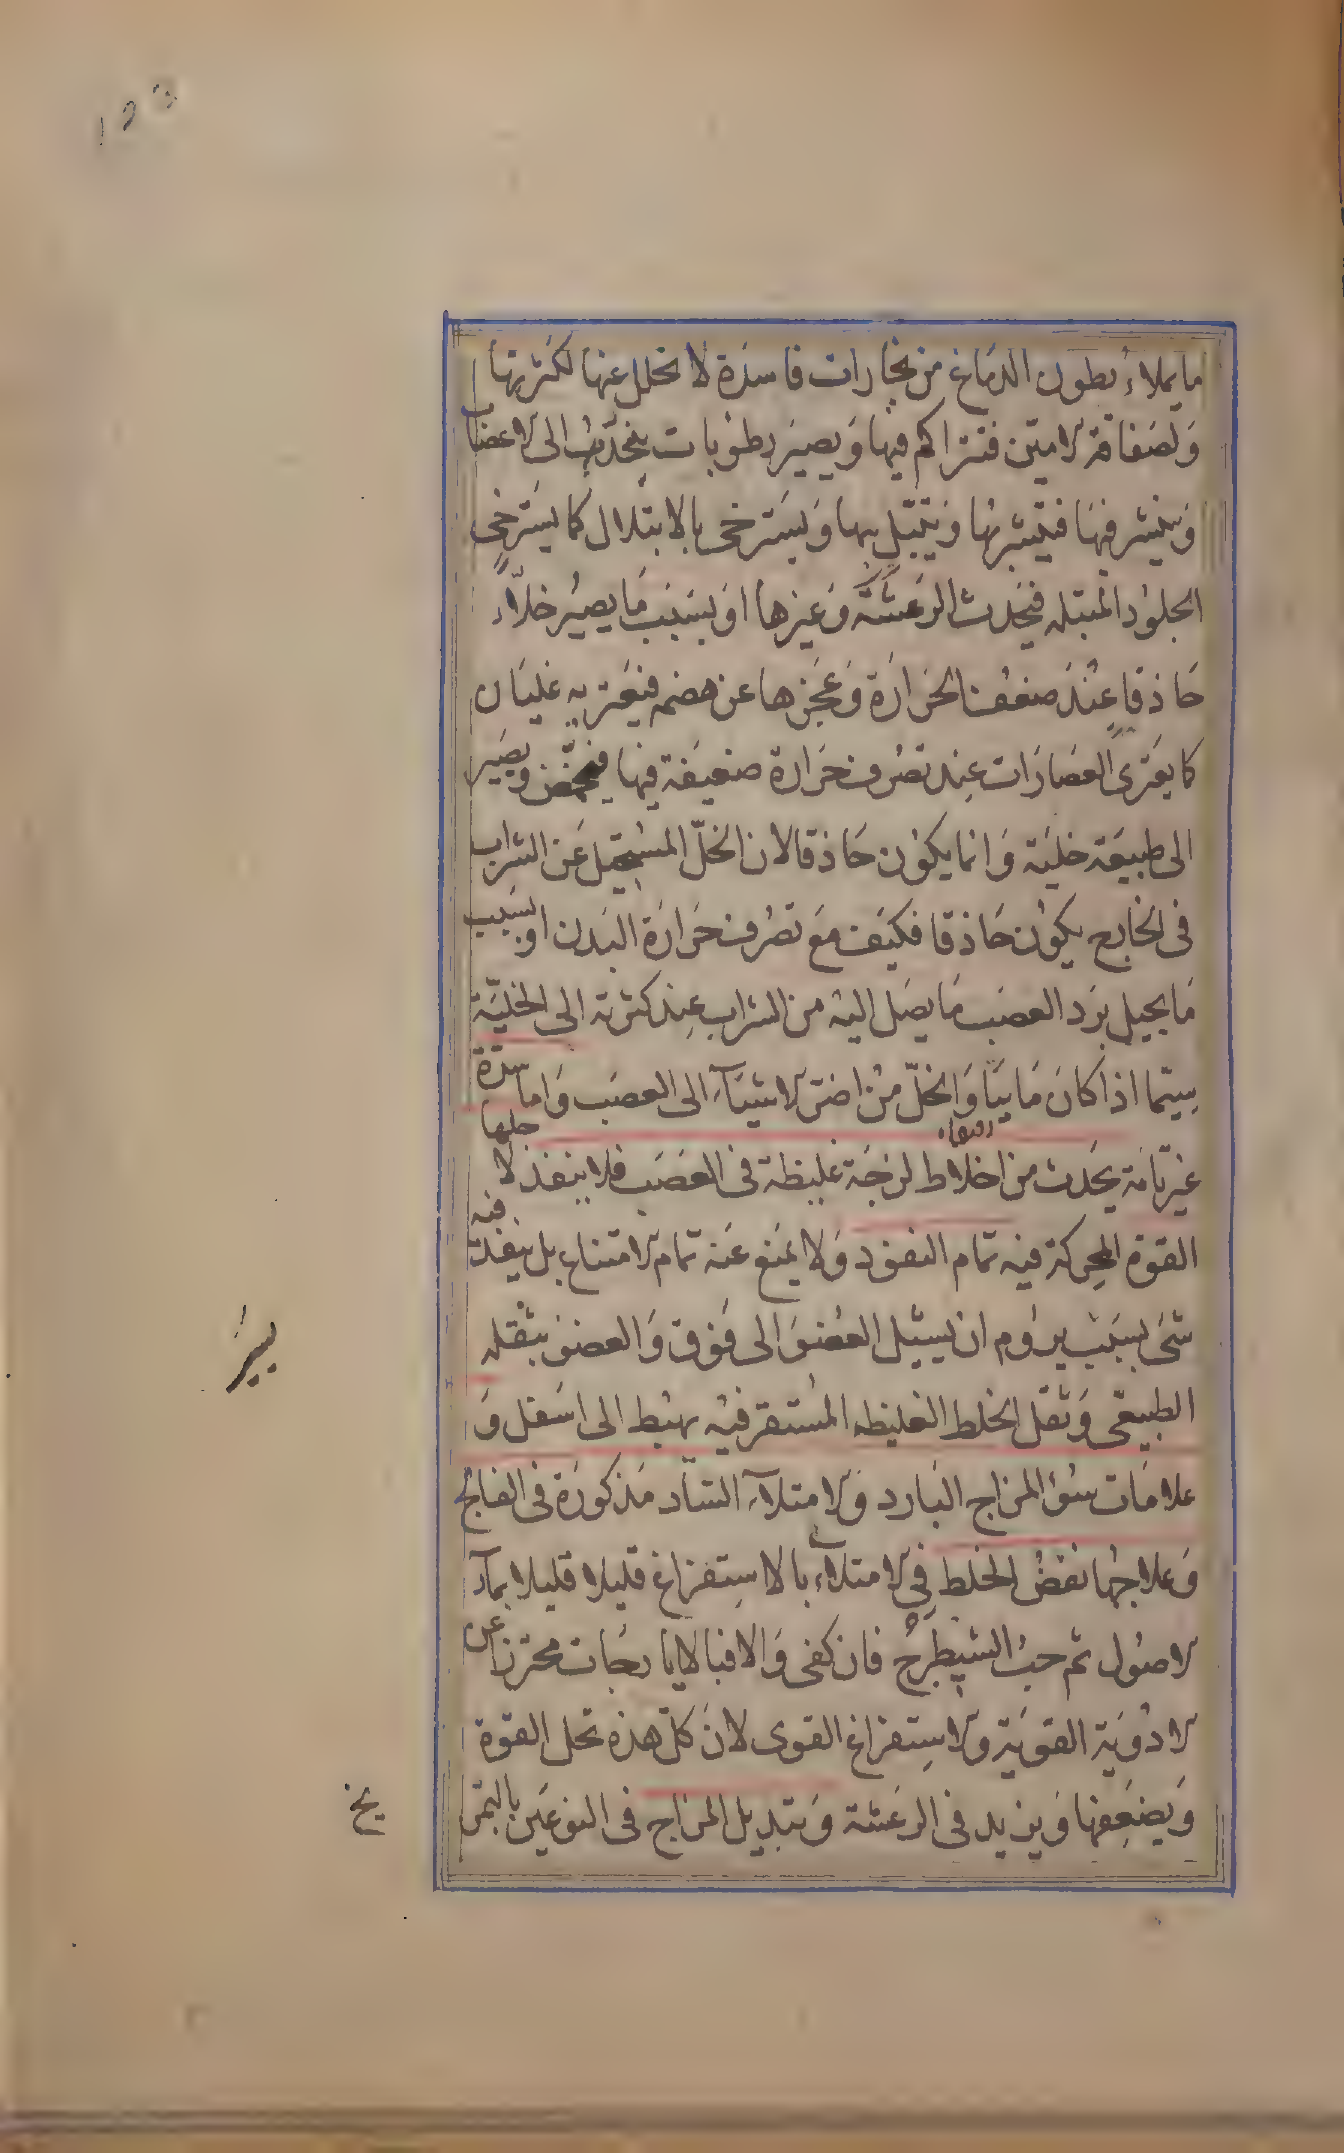 ما يملاء بطون الدماغ من بخارات فاسدة لا تحلل عنها لكثرتها
ولصفاقة الامين فتتراكم فيها ويصير رطوبات ينحدر الى الاعصاب
وينشر فيها فيتشربها ويبتل بها ويسترخى بالابتلال كما يسترخى
الجلود المبتله فيحدث الرعشة وغيرها او بسبب ما يصير خلاّء
حاذقا عند ضعف الحرارة وعجزها عن هضمه فيعتريه غليان
كما يعترى العصارات عند تصرف حرارة ضعيفة فيها فيحمض ويصير
الى طبيعة خلية وانما يكون حاذقا لان الخلّ المستحيل عن الشراب
فى الخارج يكون حاذقا فكيف مع تصرف حرارة البدن او بسبب
ما يحيل برد العصب ما يصل اليه من الشراب عند كثرته الى الخليّة
سيّما اذا كان مائيا والخلّ من اضر الاشيآء الى العصب واما سدة
غير تامة يحدث من اخلاط لزجة غليظة فى العصب فلا ينفذ لاجلها
القوة المحركة فيه تمام النفوذ ولا يمنع عنه تمام الامتناع بل ينفذ فيه
شى بسبب يروم ان يسيل العضو الى فوق والعضو بثقله
الطبيعى وثقل الخلط الغليظ المستقر فيه يهبط الى اسفل و
علامات سوء المزاج البارد والامتلآء الساد مذكورة فى الفالج
وعلاجها نفض الخلط فى الامتلاء بالاستفراغ قليلا قليلا بمآء
الاصول ثم حب الشيطرج فان كفى والا فبالايارجات محترزا عن
الادوية القوية والاستفراغ القوى لان كل هذه تحل القوة
ويضعفها ويزيد فى الرعشة وتبديل المزاج فى النوعين بالتمر
يسير
يخ